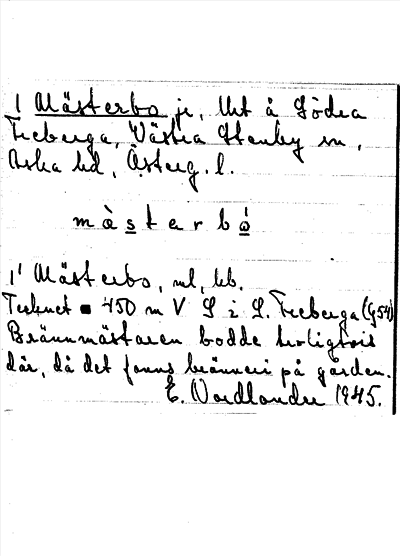 1 Mästerbo je, Utt å Södra
Freberga, Västra Stenby sn,
Aska hd, Österg. l.
màsterbó
1' Mästerbo, ml, bb.
Tecknet 450 m V S i S. Freberga (G54)
Brännmästaren bodde troligtvis
där, då det fanns bränneri på gården.
E. Nordlander 1945.